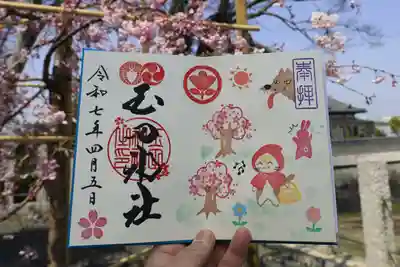 奉拝
玉田神社
令和七年四月五日